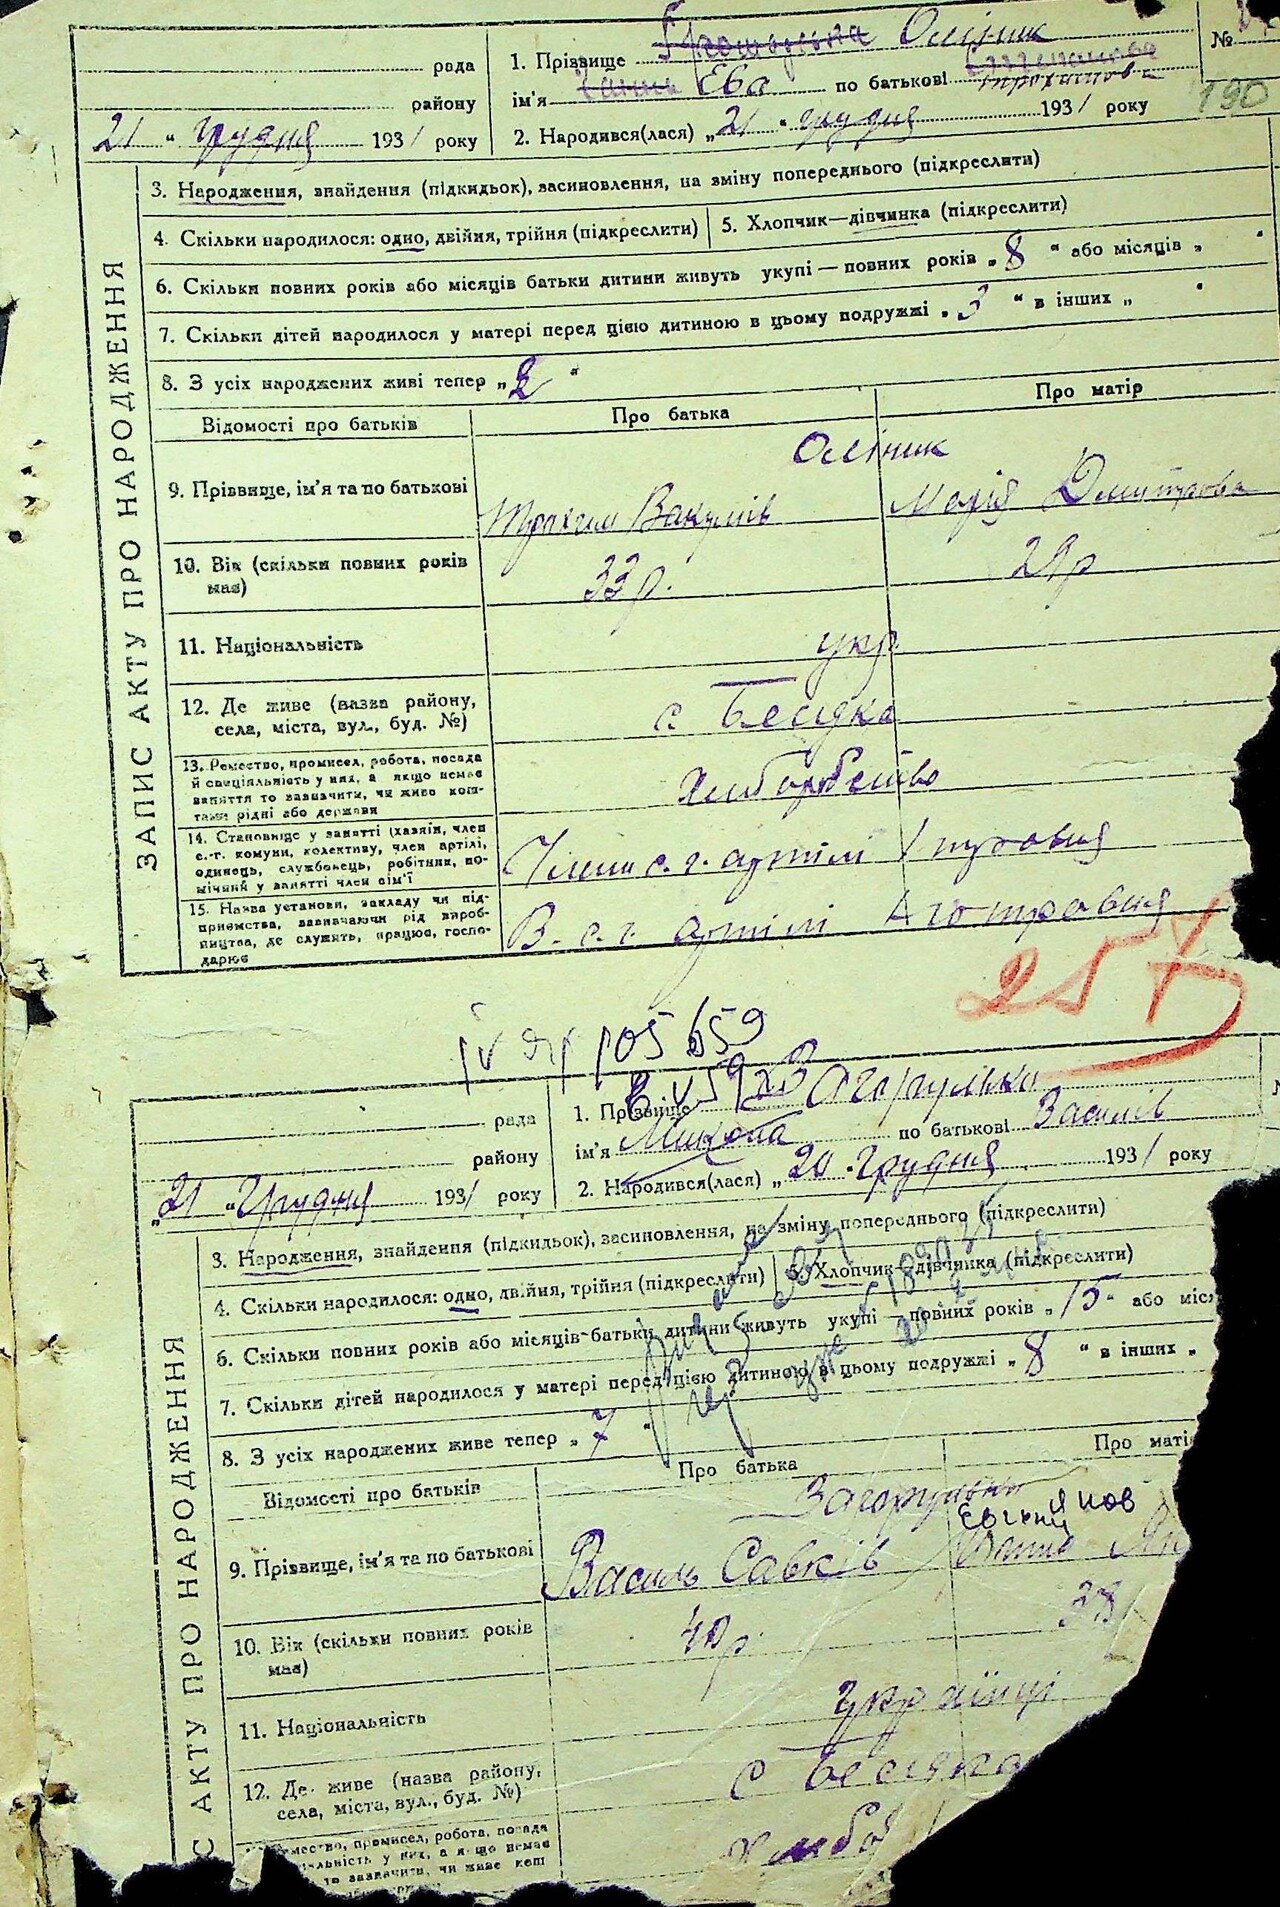 рада
району
21 " грудня 1931 року
1. Прізвище Олійник
ім'я Ева по батькові Трохимова
2. Народився(лася) „21" грудня 1931 року
№
190
ЗАПИС АКТУ ПРО НАРОДЖЕННЯ
3. Народження, знайдення (підкидьок), засиновлення, на зміну попереднього (підкреслити)
4. Скільки народилося: одно, двійня, трійня (підкреслити)
5. Хлопчик—дівчинка (підкреслити)
6. Скільки повних років або місяців батьки дитини живуть укупі — повних років „ 8 " або місяців „ "
7. Скільки дітей народилося у матері перед цією дитиною в цьому подружжі „ 3 " в інших „ "
8. З усіх народжених живі тепер „ 2 "
Відомості про батьків
Про батька
Про матір
9. Прізвище, ім'я та по батькові
Олійник
Трохим Вакулів
Марія Дмитрова
10. Вік (скільки повних років має)
33 р.
29 р
11. Національність
укр.
12. Де живе (назва району,
села, міста, вул., буд. №)
с. Бесідка
13. Ремество, промисел, робота, посада
й спеціяльність у них, а якщо немає
заняття то зазначити, чи живе кош-
тами рідні або держави
Хліборобство
14. Становище у занятті (хазяїн, член
с.-г. комуни, колективу, член артілі,
одинець, службовець, робітник, по-
мічний у занятті член сім'ї
Члени с. г. артілі
15. Назва установи, закладу чи під-
приємства, зазначаючи рід вироб-
ництва, де служить, працює, госпо-
дарює
В. с. г. артілі
257
105659
рада
району
„21 " Грудня 1931 року
1. Прізвище Загорулько
ім'я Микола по батькові Василів
2. Народився(лася) „20 " Грудня 1931 року
АКТУ ПРО НАРОДЖЕННЯ
3. Народження, знайдення (підкидьок), засиновлення, на зміну попереднього (підкреслити)
4. Скільки народилося: одно, двійня, трійня (підкреслити)
5. Хлопчик—дівчинка (підкреслити)
6. Скільки повних років або місяців батьки дитини живуть укупі — повних років „ 15 " або міс
7. Скільки дітей народилося у матері перед цією дитиною в цьому подружжі „ 8 " в інших „
8. З усіх народжених живе тепер „ 7 "
Відомості про батьків
Про батька
Про маті
Загорулько
9. Прізвище, ім'я та по батькові
Василь Савків
Евгенія
10. Вік (скільки повних років має)
40 р.
38
11. Національність
українці
12. Де живе (назва району,
села, міста, вул., буд. №)
с Бесідка
мество, промисел, робота, посада
яльність у них, а якщо немає
то зазначити, чи живе кош
Хлібо